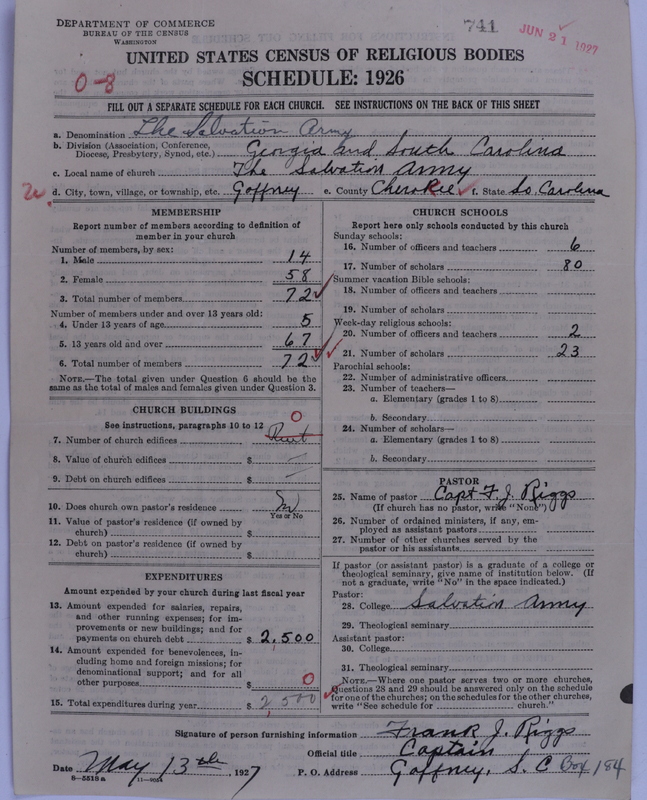 DEPARTMENT OF COMMERCE
BUREAU OF THE CENSUS
WASHINGTON
741
JUN 21 1927
UNITED STATES CENSUS OF RELIGIOUS BODIES
SCHEDULE: 1926
0-8
FILL OUT A SEPARATE SCHEDULE FOR EACH CHURCH. SEE INSTRUCTIONS ON THE BACK OF THIS SHEET
a. Denomination The Salvation Army
b. Division (Association, Conference, Diocese, Presbytery, Synod, etc.) Georgia and South Carolina
c. Local name of church The Salvation Army
d. City, town, village, or township, etc. Gaffney e. County Cherokee f. State So. Carolina
MEMBERSHIP
Report number of members according to definition of
member in your church
Number of members, by sex:
1. Male 14
2. Female 58
3. Total number of members 72
Number of members under and over 13 years old:
4. Under 13 years of age 5
5. 13 years old and over 67
6. Total number of members 72
NOTE.—The total given under Question 6 should be the
same as the total of males and females given under Question 3.
CHURCH BUILDINGS
See instructions, paragraphs 10 to 12
0
7. Number of church edifices Rent
8. Value of church edifices $
9. Debt on church edifices $
10. Does church own pastor's residence
Yes or No
11. Value of pastor's residence (if owned by
church) $
12. Debt on pastor's residence (if owned by
church) $
EXPENDITURES
Amount expended by your church during last fiscal year
13. Amount expended for salaries, repairs,
and other running expenses; for im-
provements or new buildings; and for
payments on church debt $ 2,500
14. Amount expended for benevolences, in-
cluding home and foreign missions; for
denominational support; and for all
other purposes $ 0
15. Total expenditures during year $ 2,500
CHURCH SCHOOLS
Report here only schools conducted by this church
Sunday schools:
16. Number of officers and teachers 6
17. Number of scholars 80
Summer vacation Bible schools:
18. Number of officers and teachers
19. Number of scholars
Week-day religious schools:
20. Number of officers and teachers 2
21. Number of scholars 23
Parochial schools:
22. Number of administrative officers
23. Number of teachers—
a. Elementary (grades 1 to 8)
b. Secondary
24. Number of scholars—
a. Elementary (grades 1 to 8)
b. Secondary
PASTOR
25. Name of pastor Capt F. J. Riggs
(If church has no pastor, write "None")
26. Number of ordained ministers, if any, em-
ployed as assistant pastors
27. Number of other churches served by the
pastor or his assistants
If pastor (or assistant pastor) is a graduate of a college or
theological seminary, give name of institution below. (If
not a graduate, write "No" in the space indicated.)
Pastor:
28. College Salvation Army
29. Theological seminary
Assistant pastor:
30. College
31. Theological seminary
NOTE.—Where one pastor serves two or more churches,
Questions 28 and 29 should be answered only on the schedule
for one of the churches; on the schedules for the other churches,
write "See schedule for church."
Signature of person furnishing information Frank J. Riggs
Official title Captain
Date May 13th, 1927 P. O. Address Gaffney, S. C Box 184
8—5518 a